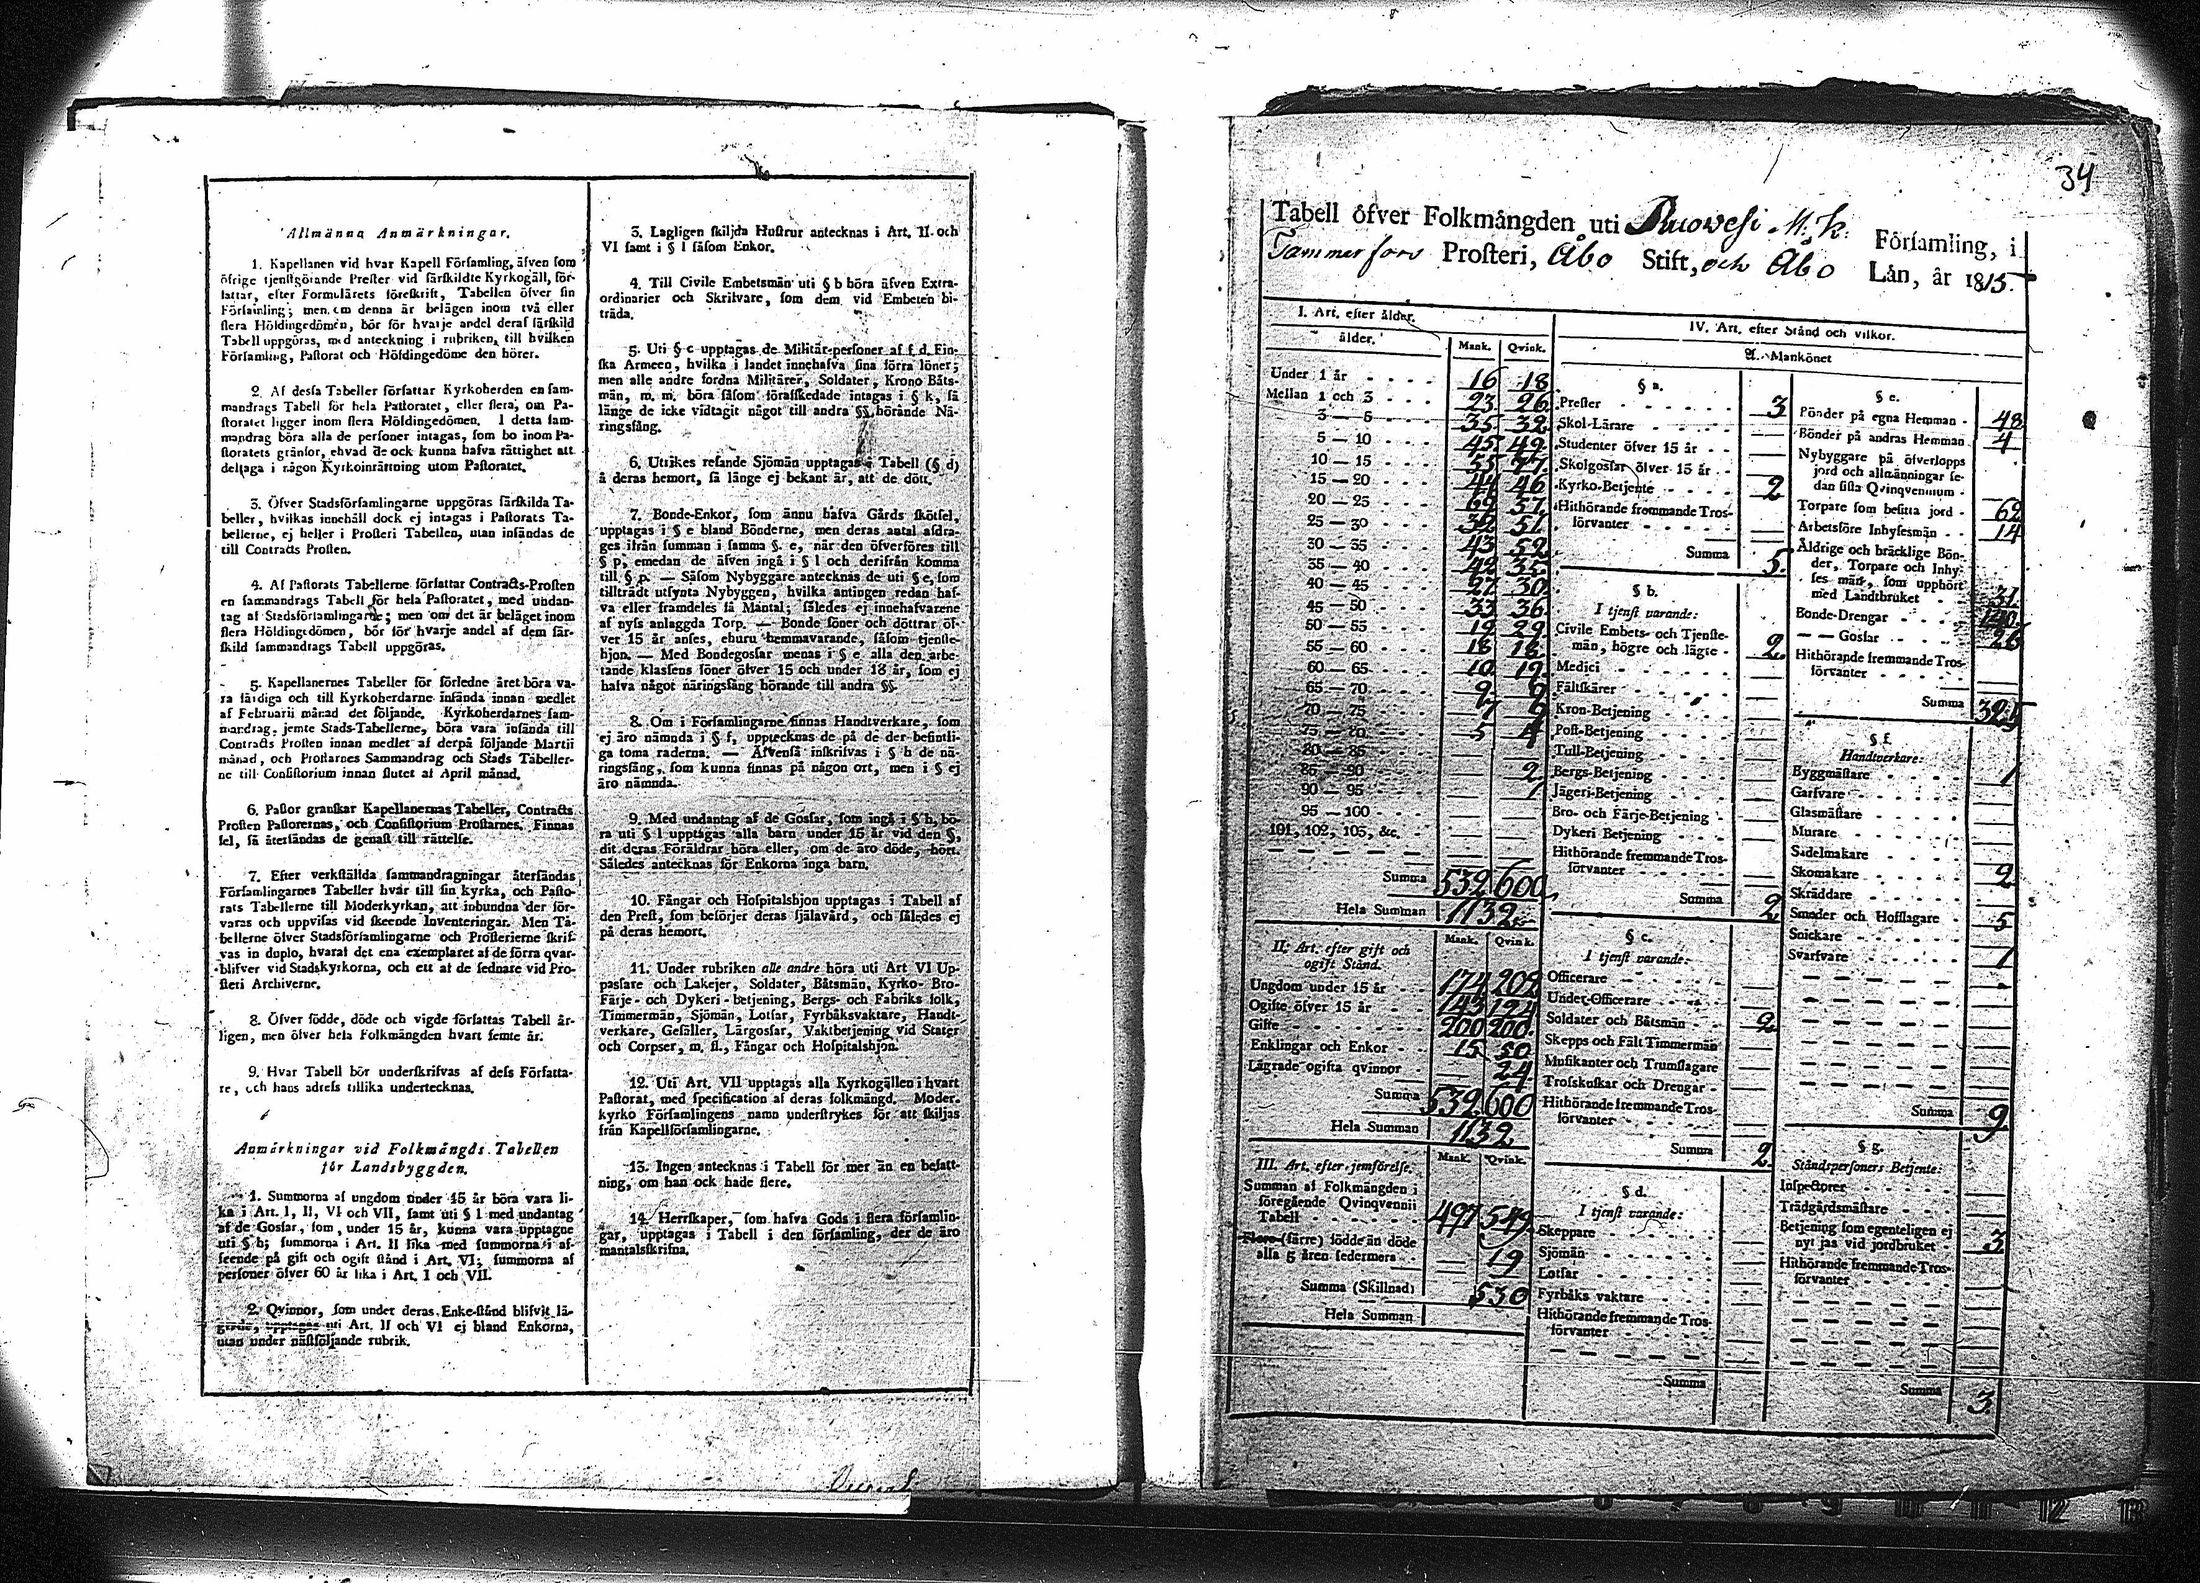 Allmänna Anmärkningar.
1. Kapellanen vid hvar Kapell Församling, äfven som
öfrige tjenstgörande Prester vid särskildte Kyrkogäll, för-
fattar, efter Formulärets föreskrift, Tabellen öfver sin
Församling; men om denna är belägen inom två eller
flera Höfdingedömen, bör för hvarje andel deraf särskild
Tabell uppgöras, med anteckning i rubriken, till hvilken
Församling, Pastorat och Höfdingedöme den hörer.
2. Af dessa Tabeller författar Kyrkoherden en sam-
mandrags Tabell för hela Pastoratet, eller flera, om Pa-
storatet ligger inom flera Höfdingedömen. I detta sam-
mandrag böra alla de personer intagas, som bo inom Pa-
storatets gränsor, ehvad de ock kunna hafva rättighet att
deltaga i någon Kyrkoinrättning utom Pastoratet.
3. Öfver Stadsförsamlingarne uppgöras särskilda Ta-
beller, hvilkas innehåll dock ej intages i Pastorats Ta-
bellerne, ej heller i Prosteri Tabellen, utan insändas de
till Contracts Prosten.
4. Af Pastorats Tabellerne författar Contracts-Prosten
en sammandrags Tabell för hela Pastoratet, med undan-
tag af Stadsförsamlingarne; men om det är beläget inom
flera Höfdingedömen, bör för hvarje andel af dem sär-
skild sammandrags Tabell uppgöras.
5. Kapellanernes Tabeller för förledne året böra va-
ra färdiga och till Kyrkoherdarne insända innan medlet
af Februarii månad det följande. Kyrkoherdarnes sam-
mandrag, jemte Stads-Tabellerne, böra vara insända till
Contracts Prosten innan medlet af derpå följande Martii
månad, och Prostarnes Sammandrag och Stads Tabeller-
ne till Consistorium innan slutet af April månad.
6. Pastor granskar Kapellanernas Tabeller, Contracts
Prosten Pastorernas, och Consistorium Prostarnes. Finnas
fel, så återsändas de genast till rättelse.
7. Efter verkställda sammandragningar återsändas
Församlingarnes Tabeller hvar till sin kyrka, och Pasto-
rats Tabellerne till Moderkyrkan, att inbundna der för-
varas och uppvisas vid skeende Inventeringar. Men Ta-
bellerne öfver Stadsförsamlingarne och Prosterierne skrif-
vas in duplo, hvaraf det ena exemplaret af de förra qvar-
blifver vid Stadskyrkorna, och ett af de sednare vid Pro-
steri Archiverne.
8. Öfver födde, döde och vigde författas Tabell år-
ligen, men öfver hela Folkmängden hvart femte år.
9. Hvar Tabell bör underskrifvas af dess Författa-
re, och hans adress tillika undertecknas.
Anmärkningar vid Folkmängds Tabellen
för Landsbyggden.
1. Summorna af ungdom under 15 år böra vara li-
ka i Art. I, II, VI och VII, samt uti § l med undantag
af de Gossar, som, under 15 år, kunna vara upptagne
uti § h; summorna i Art. II lika med summorna i af-
seende på gift och ogift stånd i Art. VI; summorna af
personer öfver 60 år lika i Art. I och VII.
2. Qvinnor, som under deras Enke-stånd blifvit lä-
grade, upptagas uti Art. II och VI ej bland Enkorna,
utan under nästföljande rubrik.
3. Lagligen skiljda Hustrur antecknas i Art. II och
VI samt i § l såsom Enkor.
4. Till Civile Embetsmän uti § b böra äfven Extra-
ordinarier och Skrifvare, som dem vid Embeten bi-
träda.
5. Uti § c upptagas de Militär-personer af f. d. Fin-
ska Armeen, hvilka i landet innehafva sina förra löner;
men alle andre fordna Militärer, Soldater, Krono Båts-
män, m. m. böra såsom förafskedade intagas i § k, så
länge de icke vidtagit något till andra §§ hörande Nä-
ringsfång.
6. Utrikes resande Sjömän upptagas i Tabell (§ d)
å deras hemort, så länge ej bekant är, att de dött.
7. Bonde-Enkor, som ännu hafva Gårds skötsel,
upptagas i § e bland Bönderne, men deras antal afdra-
ges ifrån summan i samma §. e, när den öfverföres till
§ p, emedan de äfven ingå i § l och derifrån komma
till § p. — Såsom Nybyggare antecknas de uti § e, som
tillträdt utsynta Nybyggen, hvilka antingen redan haf-
va eller framdeles få Mantal; således ej innehafvarene
af nyss anlaggda Torp. — Bonde söner och döttrar öf-
ver 15 år anses, ehuru hemmavarande, såsom tjenste-
hjon. — Med Bondegossar menas i § e alla den arbe-
tande klassens söner öfver 15 och under 18 år, som ej
hafva något näringsfång hörande till andra §§.
8. Om i Församlingarne finnas Handtverkare, som
ej äro nämnda i § f, upptecknas de på de der befintli-
ga toma raderna. — Äfvenså inskrifvas i § h de nä-
ringsfång, som kunna finnas på någon ort, men i § ej
äro nämnda.
9. Med undantag af de Gossar, som ingå i § h, bö-
ra uti § l upptagas alla barn under 15 år vid den §,
dit deras Föräldrar höra eller, om de äro döde, hört.
Således antecknas för Enkorna inga barn.
10. Fångar och Hospitalshjon upptagas i Tabell af
den Prest, som besörjer deras själavård, och således ej
på deras hemort.
11. Under rubriken alle andre höra uti Art VI Up-
passare och Lakejer, Soldater, Båtsmän, Kyrko- Bro-
Färje- och Dykeri-betjening, Bergs- och Fabriks folk,
Timmermän, Sjömän, Lotsar, Fyrbåksvaktare, Handt-
verkare, Gesäller, Lärgossar, Vaktbetjening vid Stater
och Corpser, m. fl., Fångar och Hospitalshjon.
12. Uti Art. VII upptagas alla Kyrkogällen i hvart
Pastorat, med specification af deras folkmängd. Moder-
kyrko Församlingens namn understrykes för att skiljas
från Kapellförsamlingarne.
13. Ingen antecknas i Tabell för mer än en befatt-
ning, om han ock hade flere.
14. Herrskaper, som hafva Gods i flera församlin-
gar, upptagas i Tabell i den församling, der de äro
mantalsskrifna.
34
Tabell öfver Folkmängden uti Ruovesi M. k. Församling, i
Tammerfors Prosteri, Åbo Stift, och Åbo Län, år 1815.
I. Art. efter ålder.
ålder. Mank. Qvink.
Under 1 år 16 18
Mellan 1 och 3 23 26
3 — 5 35 32
5 — 10 45 49
10 — 15 55 77
15 — 20 44 46
20 — 25 69 57
25 — 30 51
30 — 35 43 52
35 — 40 42 35
40 — 45 27 30
45 — 50 33 36
50 — 55 19 29
55 — 60 18 18
60 — 65 10 19
65 — 70 9 9
70 — 75 7
75 — 80 5 4
80 — 85
85 — 90 2
90 — 95 1
95 — 100
101, 102, 103, &c.
Summa 532 600
Hela Summan 1132
II. Art. efter gift och
ogift Stånd. Mank. Qvink.
Ungdom under 15 år 174 202
Ogifte öfver 15 år 143 124
Gifte 200 200
Enklingar och Enkor 15 50
Lägrade ogifta qvinnor 24
Summa 532 600
Hela Summan 1132
III. Art. efter jemförelse. Mank. Qvink.
Summan af Folkmängden i
föregående Qvinqvennii
Tabell 497 549
Flere (färre) födde än döde
alla 5 åren sedermera 19
Summa (Skillnad) 530
Hela Summan
IV. Art. efter Stånd och vilkor.
A. Mankönet
§ a.
Prester 3
Skol-Lärare
Studenter öfver 15 år
Skolgossar öfver 15 år
Kyrko-Betjente 2
Hithörande fremmande Tros-
förvanter
Summa 5
§ b.
I tjenst varande:
Civile Embets- och Tjenste-
män, högre och lägre 2
Medici
Fältskärer
Kron-Betjening
Post-Betjening
Tull-Betjening
Bergs-Betjening
Jägeri-Betjening
Bro- och Färje-Betjening
Dykeri Betjening
Hithörande fremmande Tros-
förvanter
Summa 2
§ c.
I tjenst varande:
Officerare
Under-Officerare
Soldater och Båtsmän 2
Skepps och Fält Timmermän
Musikanter och Trumslagare
Trosskuskar och Drengar
Hithörande fremmande Tros-
förvanter
Summa 2
§ d.
I tjenst varande:
Skeppare
Sjömän
Lotsar
Fyrbåks vaktare
Hithörande fremmande Tros-
förvanter
Summa
§ e.
Bönder på egna Hemman 48
Bönder på andras Hemman 4
Nybyggare på öfverlopps
jord och allmänningar se-
dan sista Qvinqvennium
Torpare som besitta jord 62
Arbetsföre Inhysesmän 14
Äldrige och bräcklige Bön-
der, Torpare och Inhy-
ses män, som upphört
med Landtbruket 31
Bonde-Drengar 140
— — Gossar 26
Hithörande fremmande Tros-
förvanter
Summa 325
§ f.
Handtverkare:
Byggmästare 1
Garfvare
Glasmästare
Murare
Sadelmakare
Skomakare 2
Skräddare
Smeder och Hofslagare 5
Snickare
Svarfvare 1
Summa 9
§ g.
Ståndspersoners Betjente:
Inspectorer
Trädgårdsmästare
Betjening som egenteligen ej
nyttjas vid jordbruket 3
Hithörande fremmande Tros-
förvanter
Summa 3
8 9 10 11 12 13